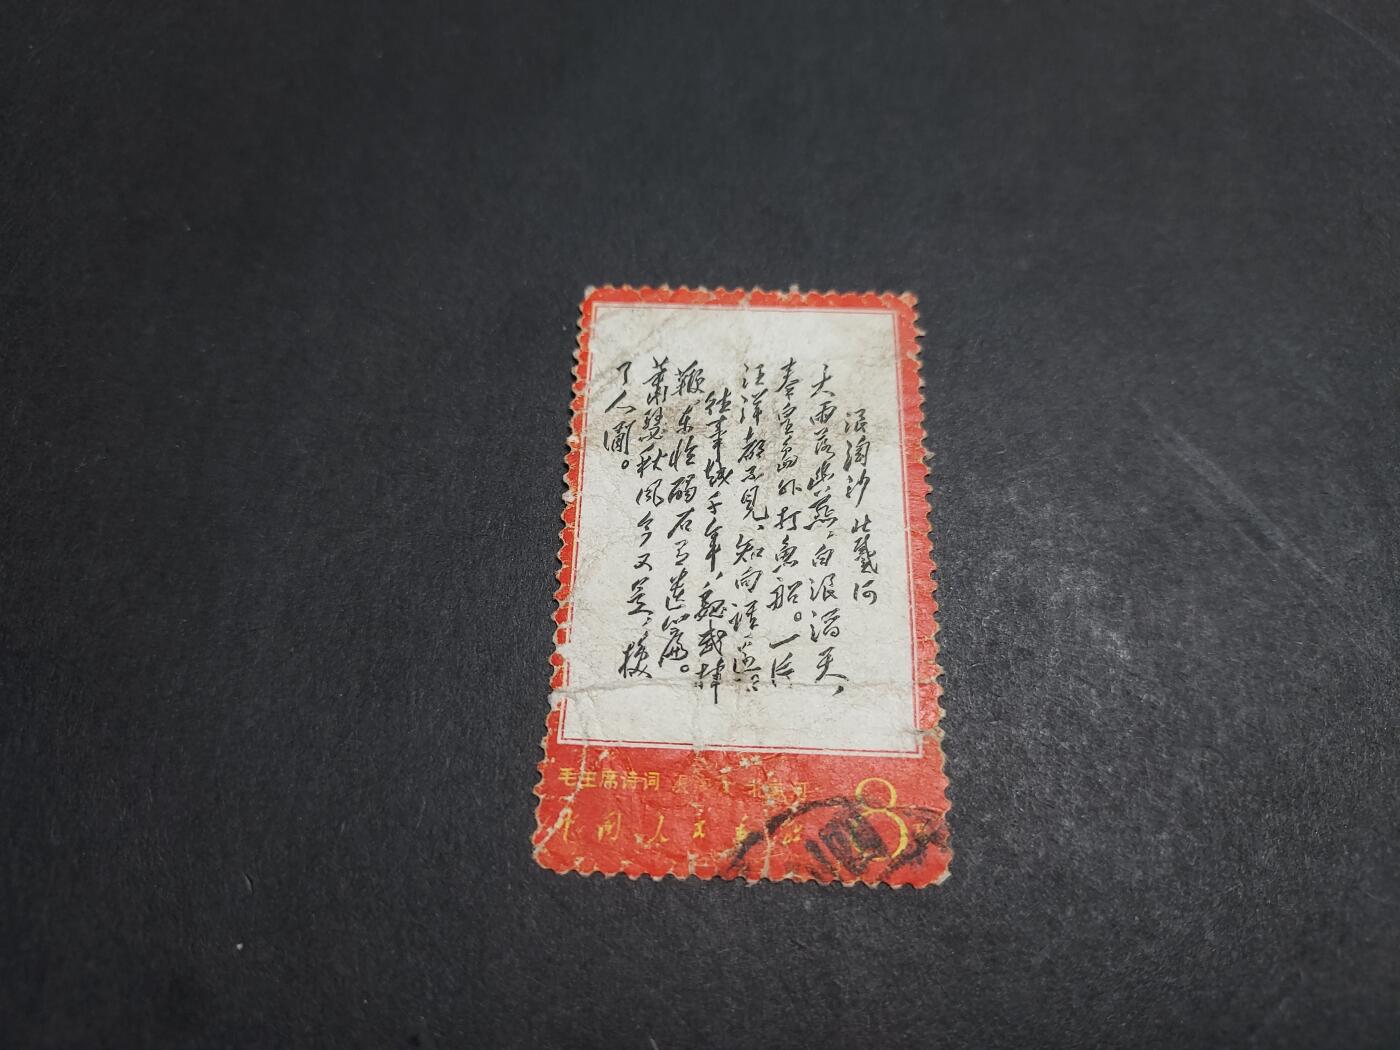 浪淘沙 北戴河
大雨落幽燕，白浪滔天，
秦皇岛外打鱼船。一片
汪洋都不见，知向谁边？
往事越千年，魏武挥
鞭，东临碣石有遗篇。
萧瑟秋风今又是，换
了人间。
毛主席诗词 北戴河
中国人民邮政
8